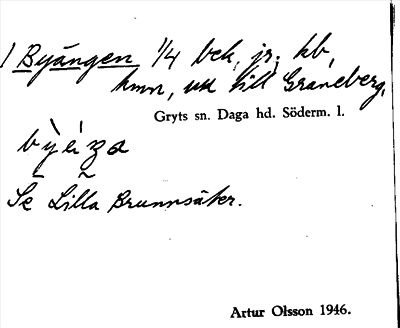 1 Byängen 1/4 bck, jr, kb,
hmn, utt till Graneberg,
Gryts sn. Daga hd. Söderm. l.
Se Lilla Brunnsäter.
Artur Olsson 1946.